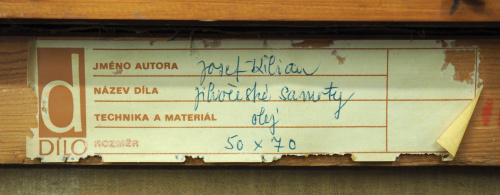 d DÍLO
JMÉNO AUTORA Josef Kilian
NÁZEV DÍLA jihočeské samoty
TECHNIKA A MATERIÁL olej
ROZMĚR 50 x 70